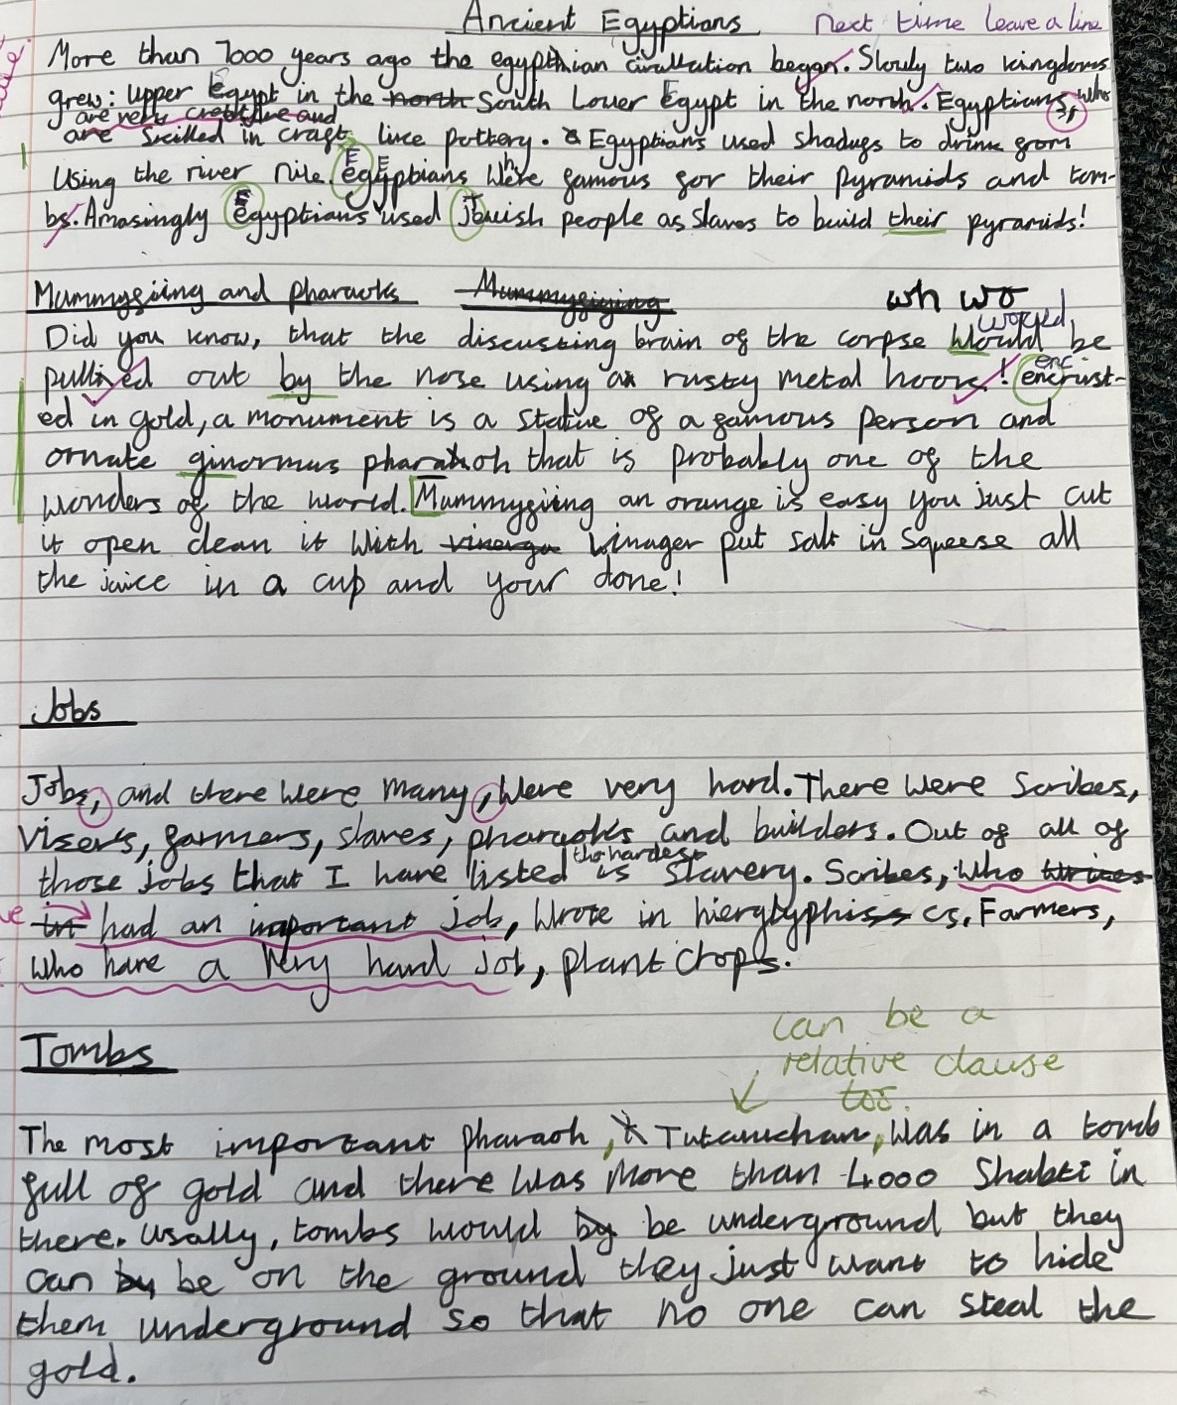 Ancient Egyptians next time leave a line
More than 7000 years ago the egyptian civallation began. Slowly two kingdoms
grew: Upper Egypt in the north South Lower Egypt in the north. Egyptians, who
are very creative and
are Skilled in crafts like pottery. Egyptians used shadugs to drink from
Using the river Nile. Egyptians Where famous for their pyramids and tom-
bs. Amasingly Egyptians used Jewish people as slaves to build their pyramids!
Mummyfiing and pharaohs Mummyfiying
wh wo
Did you know, that the discusting brain of the corpse Would would be
pullled out by the nose using a rusty metal hook! enc encrust-
ed in gold, a monument is a statue of a famous person and
ornate ginormus pharaoh that is probably one of the
wonders of the world. Mummyfiing an orange is easy you just cut
it open clean it With vinerga Vinager put salt in squeese all
the juice in a cup and your done!
Jobs
Jobs, and there were many, Were very hard. There were Scribes,
Visers, farmers, slaves, pharaohs and builders. Out of all of
the hardest
those jobs that I have listed is slavery. Scribes, who writes
in had an important job, Wrote in hierglyphiss cs. Farmers,
Who have a Very hard job, plant crops.
can be a
Tombs
relative clause
too.
The most important pharaoh, Tutanckhan, Was in a tomb
full of gold and there was more than 4000 Shabti in
there. Usally, tombs would by be underground but they
can by be on the ground they just want to hide
them underground so that no one can steal the
gold.